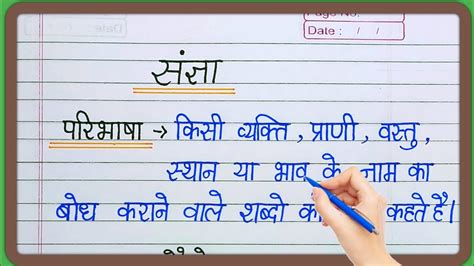 Page No.
Date : / /
संज्ञा
परिभाषा → किसी व्यक्ति , प्राणी , वस्तु ,
स्थान या भाव के नाम का
बोध कराने वाले शब्दो कहते है।